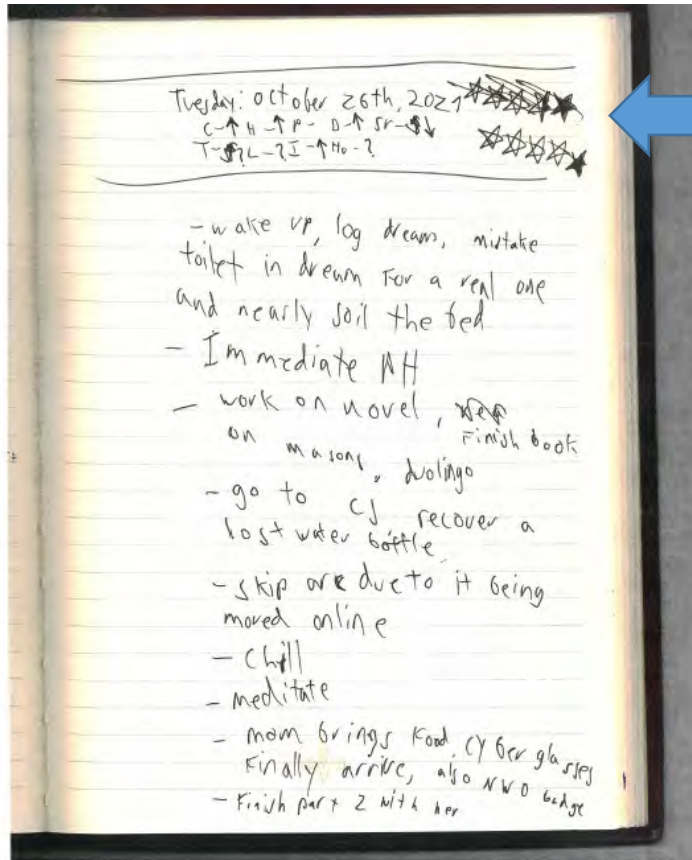 Tuesday: october 26th, 2021
C-↑ H-↑ P- D-↑ Sr-↓
T-?L-? I-↑ Ho-?
- wake up, log dream, mistake
toilet in dream for a real one
and nearly soil the bed
- Immediate NH
- work on novel, Finish book
on masons, duolingo
- go to CJ recover a
lost water bottle
- skip due to it being
moved online
- Chill
- meditate
- mom brings food, cyber glasses
Finally arrive, also NWO badge
- Finish part 2 with her